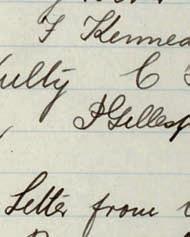 F Kenned
ulty C
P Gillesp
Letter from